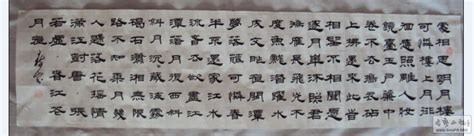 處相思明月樓
可憐樓上月徘
徊應照離人妝
鏡臺玉戶簾中
卷不去擣衣砧
上拂還來此時
相望不相聞願
逐月華流照君
鴻雁長飛光不
度魚龍潛躍水
成文昨夜閑潭
夢落花可憐春
半不還家江水
流春去欲盡江
潭落月復西斜
斜月沉沉藏海霧
碣石瀟湘無限
路不知乘月幾
人歸落月搖情
滿江樹唐張
若虛春江花
月夜